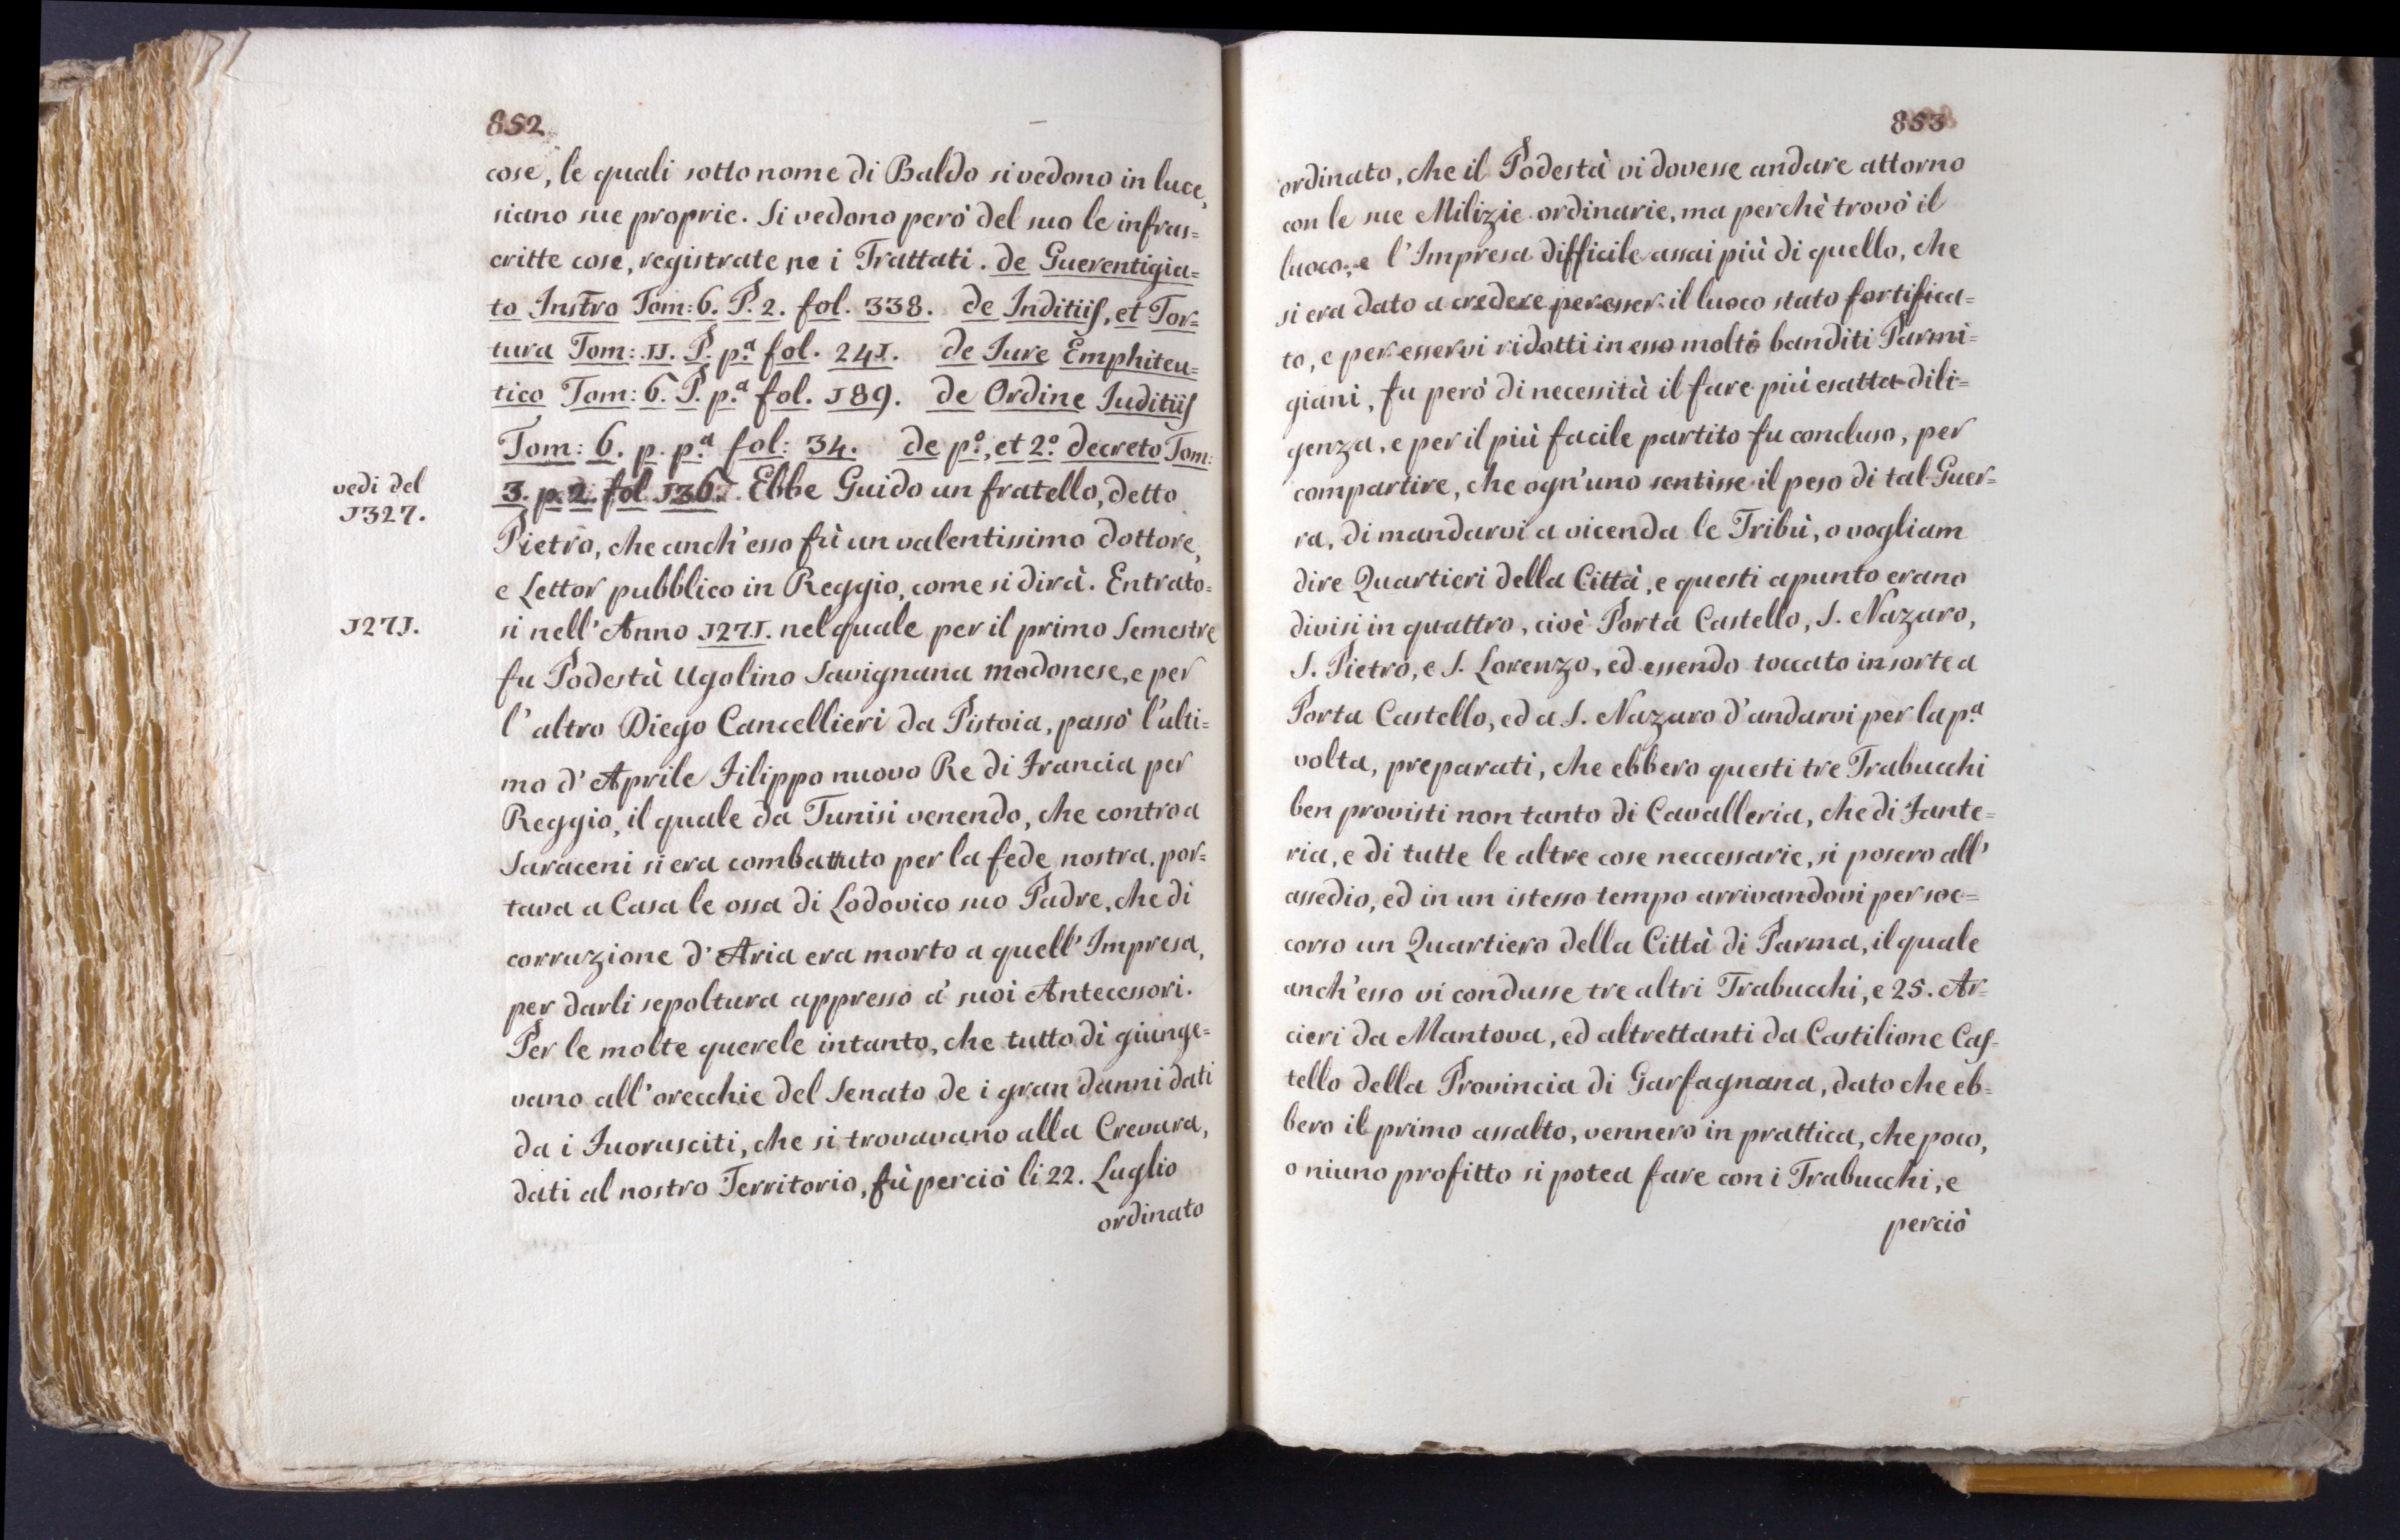 852
cose, le quali sotto nome di Baldo si vedono in luce,
siano sue proprie. Si vedono però del suo le infras=
critte cose, registrate ne i Trattati. de Guerentigia=
to Instro Tom: 6. P. 2. fol. 338. de Inditiis, et Tor=
tura Tom: 11. P. p.a fol. 241. de Iure Emphiteu=
tico Tom: 6. P. p.a fol. 189. de Ordine Iuditiis
Tom: 6. p. p.a fol: 34. de p.o, et 2.o decreto Tom:
vedi del
1327.
3. p. 2. fol. 136. Ebbe Guido un fratello, detto
Pietro, che anch'esso fù un valentissimo dottore,
e Lettor pubblico in Reggio, come si dirà. Entrato=
1271.
si nell'Anno 1271. nel quale per il primo Semestre
fu Podestà Ugolino Savignana modonese, e per
l'altro Diego Cancellieri da Pistoia, passò l'ulti=
mo d'Aprile Filippo nuovo Re di Francia per
Reggio, il quale da Tunisi venendo, che contro a
Saraceni si era combattuto per la fede nostra, por=
tava a Casa le ossa di Lodovico suo Padre, che di
corruzione d'Aria era morto a quell'Impresa,
per darli sepoltura appresso a' suoi Antecessori.
Per le molte querele intanto, che tutto dì giunge=
vano all'orecchie del Senato de i gran danni dati
da i Fuorusciti, che si trovavano alla Crevara,
dati al nostro Territorio, fù perciò li 22. Luglio
ordinato
853
ordinato, che il Podestà vi dovesse andare attorno
con le sue Milizie ordinarie, ma perchè trovò il
luoco, e l'Impresa difficile assai più di quello, che
si era dato a credere per esser il luoco stato fortifica=
to, e per esservi ridotti in esso molti banditi Parmi=
giani, fu però di necessità il fare più esatta dili=
genza, e per il più facile partito fu concluso, per
compartire, che ogn'uno sentisse il peso di tal Guer=
ra, di mandarvi a vicenda le Tribù, o vogliam
dire Quartieri della Città, e questi apunto erano
divisi in quattro, cioè Porta Castello, S. Nazaro,
S. Pietro, e S. Lorenzo, ed essendo toccato in sorte a
Porta Castello, ed a S. Nazaro d'andarvi per la p.a
volta, preparati, che ebbero questi tre Trabucchi
ben provisti non tanto di Cavalleria, che di Fante=
ria, e di tutte le altre cose neccessarie, si posero all'
assedio, ed in un istesso tempo arrivandovi per soc=
corso un Quartiero della Città di Parma, il quale
anch'esso vi condusse tre altri Trabucchi, e 25. Ar=
cieri da Mantova, ed altrettanti da Castilione Cas=
tello della Provincia di Garfagnana, dato che eb=
bero il primo assalto, vennero in prattica, che poco,
o niuno profitto si potea fare con i Trabucchi, e
perciò